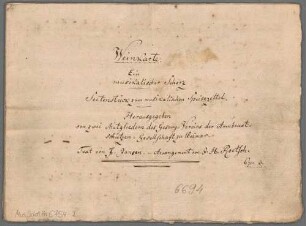 Weinkarte
Ein
musikalischer Scherz
Seitenstück zum musikalischen Speisezettel
Herausgegeben
von zwei Mitgliedern des Gesang-Vereins der Armbrust-
schützen-Gesellschaft zu Weimar
Text von F. Jungen Arrangement von
Op. 6.
6694